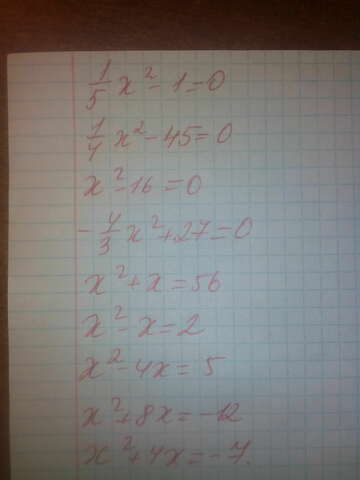 1/5 x² - 1 = 0
1/4 x² - 45 = 0
x² - 16 = 0
- 4/3 x² + 27 = 0
x² + x = 56
x² - x = 2
x² - 4x = 5
x² + 8x = -12
x² + 4x = -7.